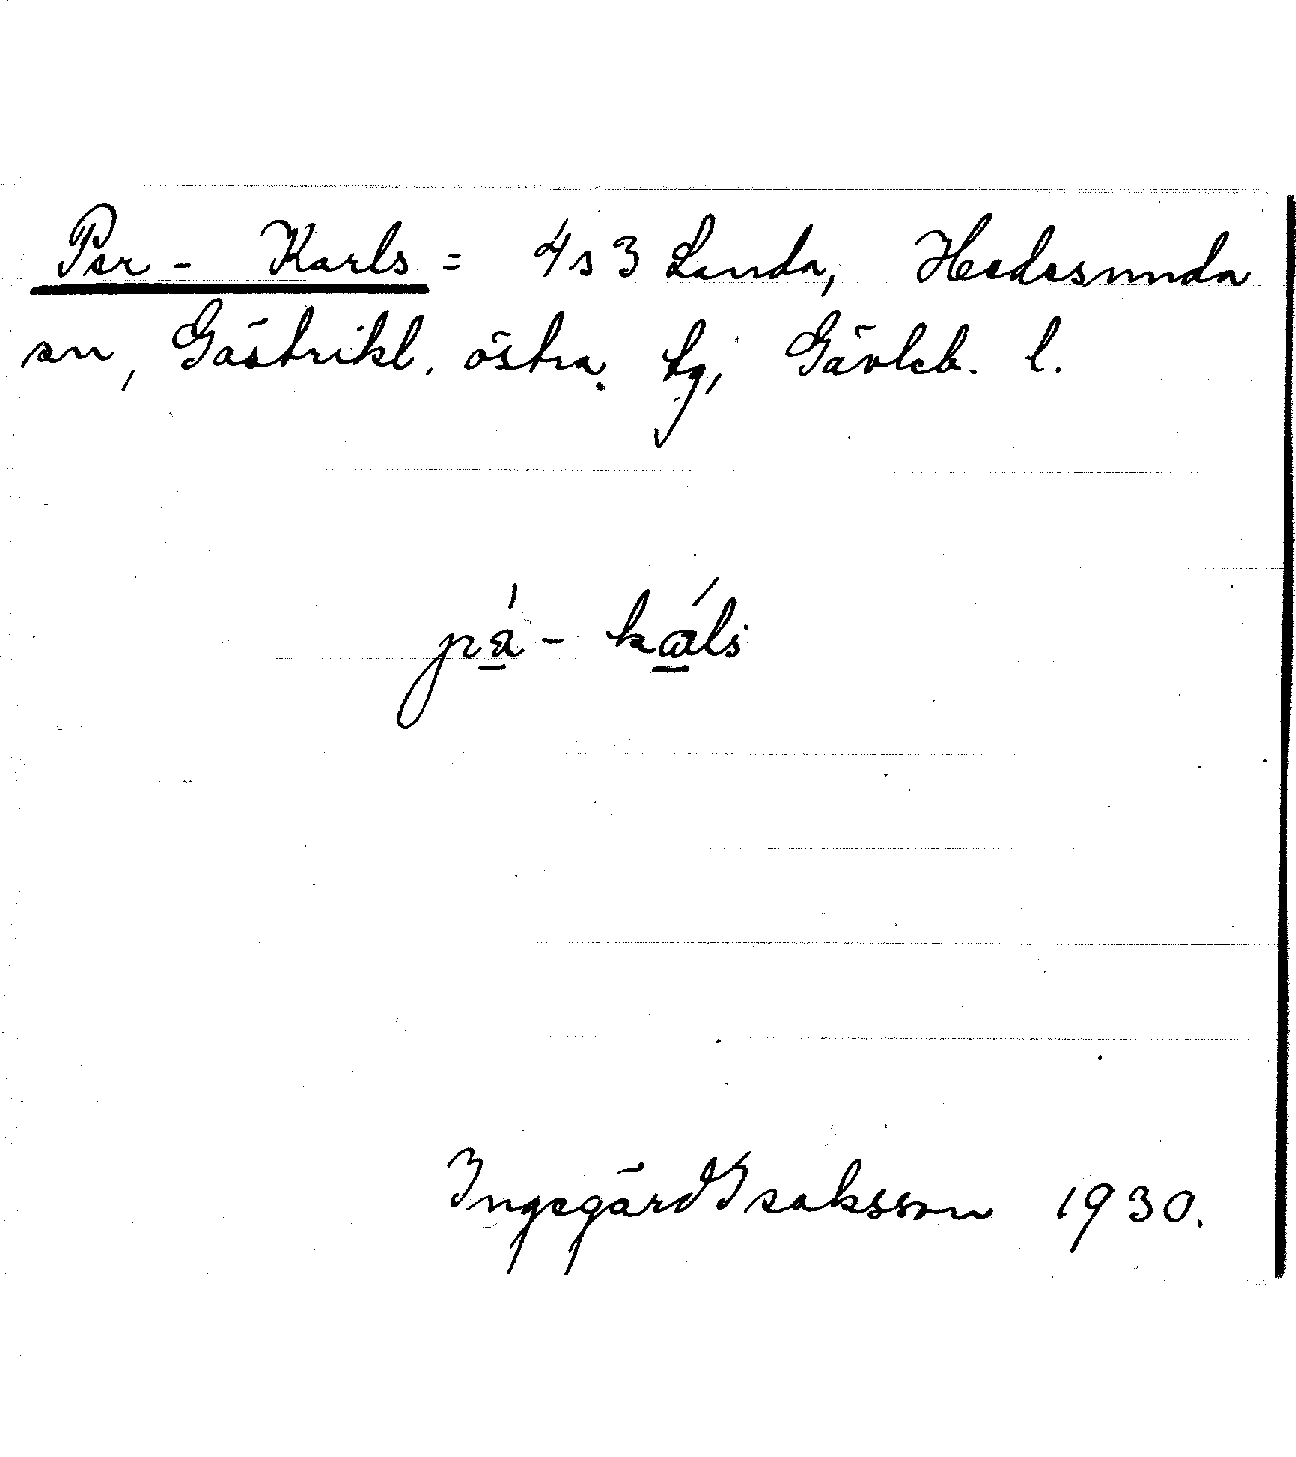 Per - Karls = 4s3 Landa, Hedesunda
sn, Gästrikl. östra tg, Gävleb. l.
Ingegärd Isaksson 1930.